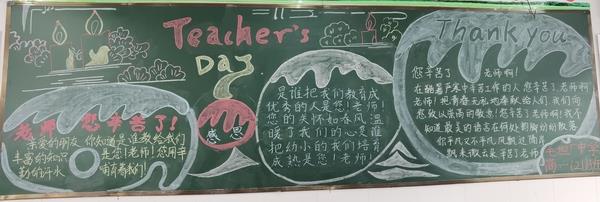 Teacher's
Day
Thank you
老师 您辛苦了!
亲爱的朋友 你知道是谁教给我们
丰富的知识 是您!老师!您用辛
勤的汗水 哺育着我们!
感恩
是谁把我们教育成
优秀的人是您!老师!
您的关怀如春风温
暖了我们的心是谁
把幼小的我们培育
成熟是您!老师!
您辛苦了 老师啊!
在酷暑严寒中辛苦工作的人 您辛苦了老师
老师!把青春无私地奉献给人们 我们向
您致以崇高的敬意!您辛苦了老师啊!我不
知道最美的语言在何处
你平凡又不平凡
飘来
辛苦了老师
中学
高一(21)班